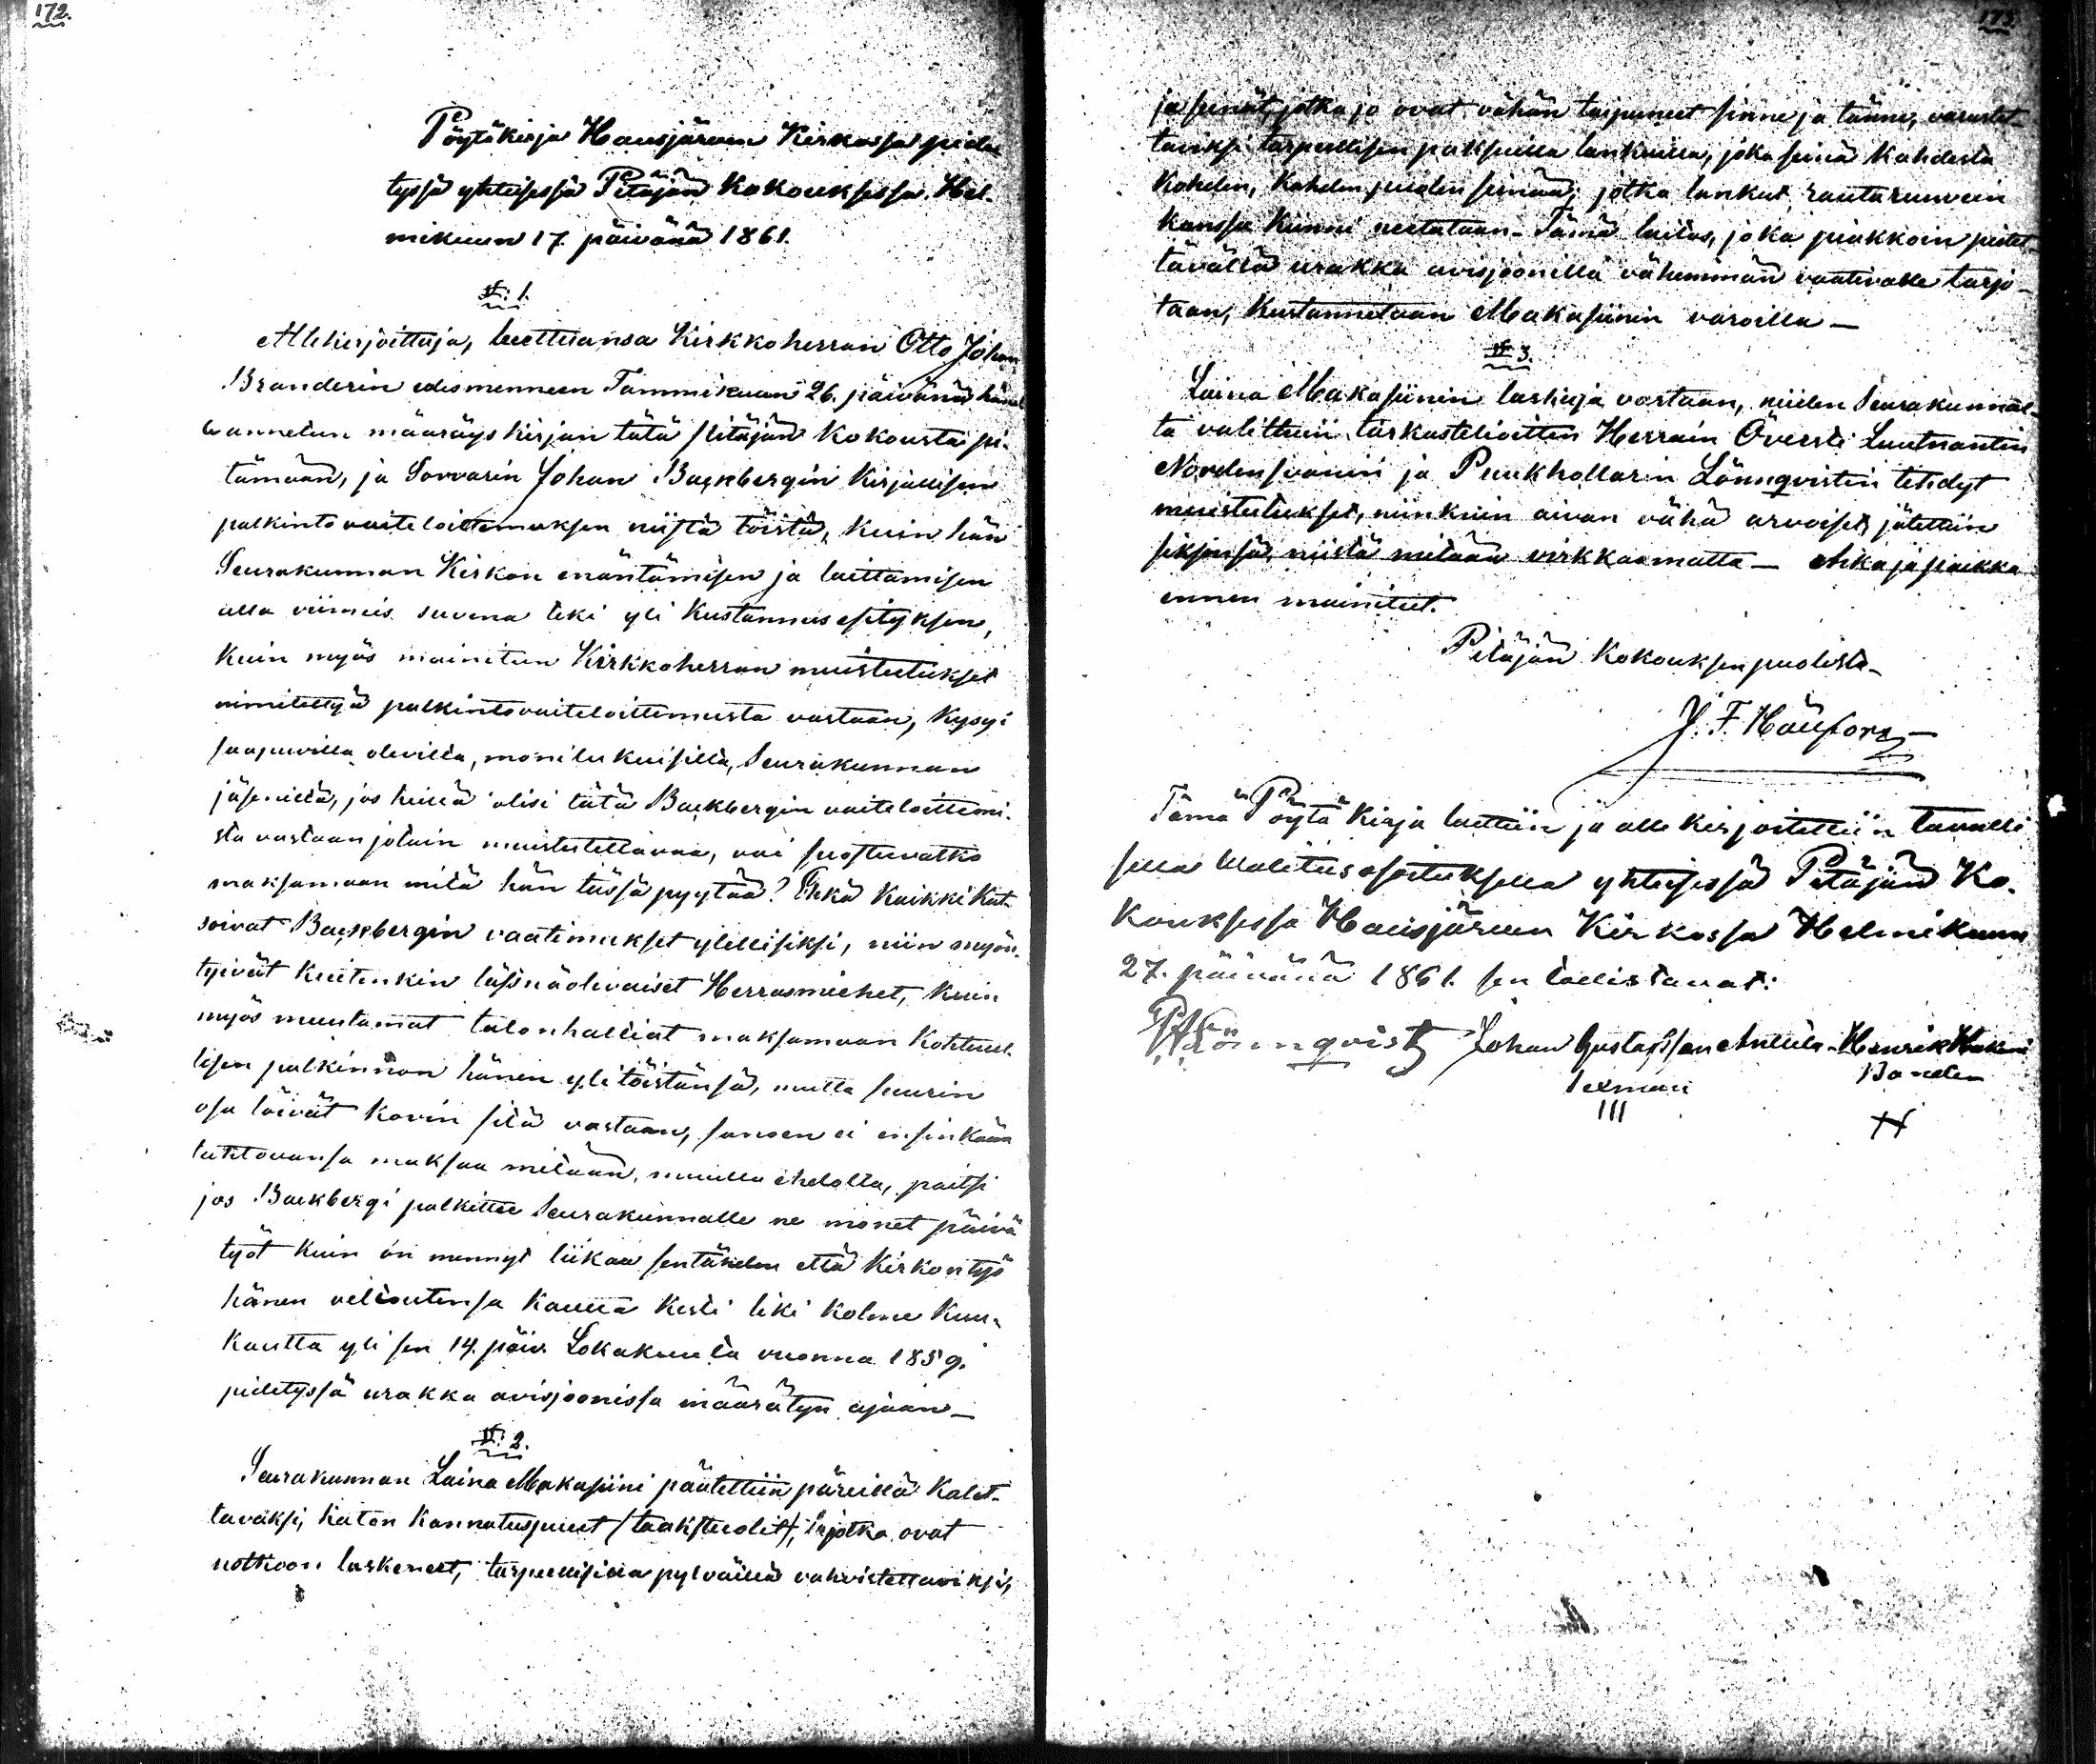 172.
Pöytäkirja Hausjärven Kirkossa pide
tyssä yhteisessä Pitäjän Kokouksessa Hel-
mikuun 17. päivänä 1861.
§: 1.
Allekirjoittaja, luettuansa Kirkkoherran Otto Johan
Branderin edesmenneen Tammikuun 26. päivänä hänel
le annetun määräyskirjan tätä Pitäjän Kokousta pi-
tämään, ja Sorvarin Johan Backbergin Kirjallisen
palkinto vaiteloittemuksen niistä töistä, kuin hän
Seurakunnan Kirkon enäntämisen ja laittamisen
alla viimeis suvena teki yli kustannus esityksen,
kuin myös mainitun Kirkkoherran muistutukset
nimitettyä palkintovaiteloittemusta vastaan, kysyi
saapuvilla olevilta, monilukuisilta, Seurakunnan
jäseniltä, jos heillä olisi tätä Backbergin vaiteloittemi-
sta vastaan jotain muistutettavaa, vai suostuvatko
maksamaan mitä hän tässä pyytää? Ehkä kaikki kat-
soivat Backbergin vaatimukset ylellisiksi, niin myön-
tyivät kuitenkin läsnäolevaiset Herrasmiehet, kuin
myös muutamat talonhalliat maksamaan kohtuul-
lisen palkinnon hänen ylitöistänsä, mutta suurin
osa löivät kovin sitä vastaan, sanoen ei ensinkään
tahtovansa maksaa mitään, muulla ehdolla, paitsi
jos Backbergi palkittee Seurakunnalle ne monet päivä
työt kuin on mennyt liikaa sentähden että Kirkontyö
hänen velvoutensa kautta kesti liki kolme kuu-
kautta yli sen 14. päiv. Lokakuuta vuonna 1859.
pidetyssä urakka avisjoonissa määrätyn ajan –
§: 2.
Seurakunnan Laina Makasiini päätettiin päreillä katet-
tavaksi, katon kannatuspuut (taakstuolit), jotka ovat
notkoon laskeneet, tarpeellisilla pylväillä vahvistettaviksi,
173.
ja seinät, jotka jo ovat vähän taipuneet sinne ja tänne, varustet-
taviksi tarpeellisen paksuilla lankuilla, joka seinä kahdesta
kohden, kahden puolen seinää, jotka lankut rautaruuvein
kanssa kiinni veetataan – Tämä laitos, joka piakkoin pidet-
tävällä urakka avisjoonilla vähemmän vaativalle tarjo-
taan, kustannetaan Makasiinin varoilla –
§ 3.
Laina Makasiinin laskuja vastaan, niiden Seurakunnal-
ta valittuin tarkastelioitten Herrain Översti Luutnantin
Nordensvanin ja Puukhollarin Lönnqvistin tehdyt
muistutukset, niinkuin aivan vähä arvoiset, jätettiin
siksensä, niistä mitään virkkaamatta – Aika ja paikka
ennen mainitut.
Pitäjän Kokouksen puolesta –
J. F. Hällfors
Tämä Pöytä kirja luettiin ja alle kirjoitettiin tavalli
sella Valitus osoituksella yhteisessä Pitäjän Ko-
kouksessa Hausjärven Kirkossa Helmikuun
27. päivänä 1861. sen todistavat:
Lönnqvist Johan Gustafsson Anttila Henrik
Sexman Bonden
III H